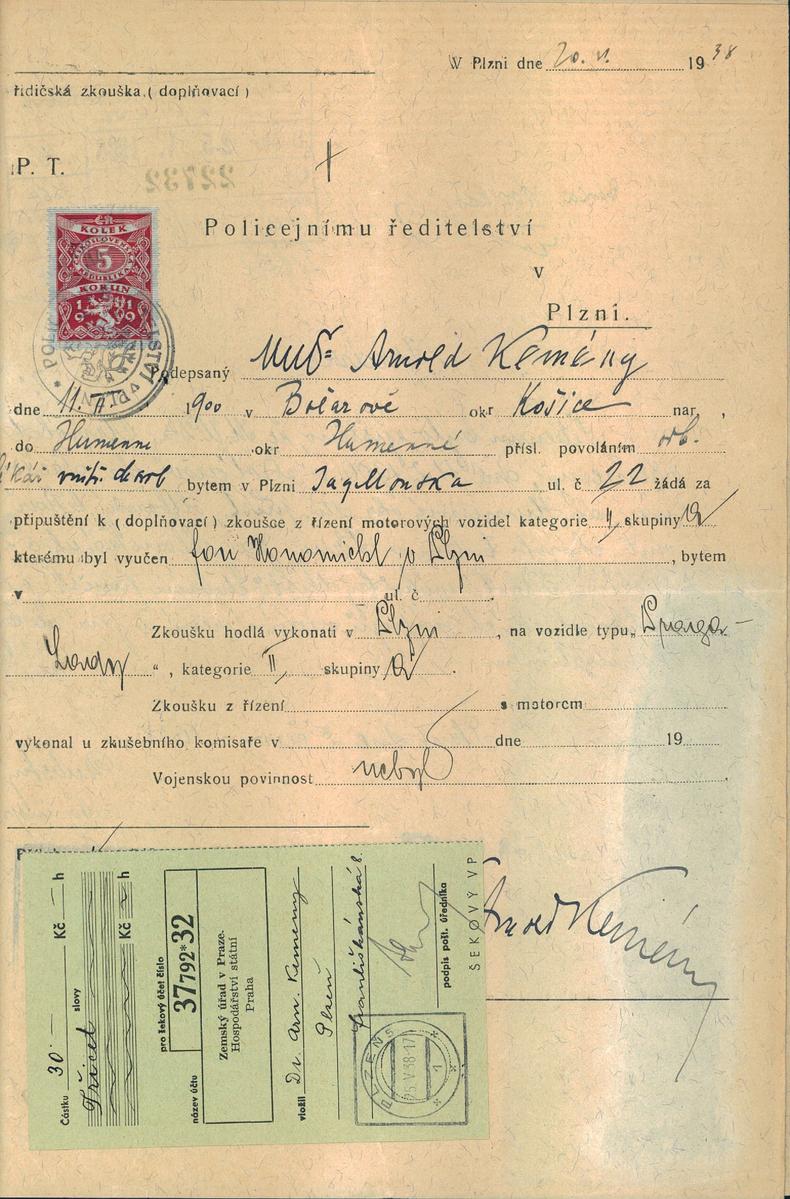 W Plzni dne 20. V. 1938
řidičská zkouška ( doplňovací )
P. T.
22732
KOLEK
5
KORUN
1919
Policejnímu ředitelství
v
Plzni.
Podepsaný MUDr Arnold Kemény
dne 11. 1900 v Bočarové okr Košice nar. ,
do Humenné okr Humenné přísl. povoláním odb.
bytem v Plzni Jagellonská ul. č 22 žádá za
připuštění k ( doplňovací ) zkoušce z řízení motorových vozidel kategorie II, skupiny a
kterému byl vyučen v Plzni , bytem
v ul. č
Zkoušku hodlá vykonati v Plzni , na vozidle typu „
“ , kategorie II, skupiny a .
Zkoušku z řízení s motorem
vykonal u zkušebního komisaře v dne 19
Vojenskou povinnost nebyl
Arnold Kemény
Částku 30 Kč — h
slovy Třicet Kč — h
pro šekový účet číslo
37792*32
název účtu
Zemský úřad v Praze.
Hospodářství státní
Praha
vložil Dr. Arn. Kemeny
Plzeň
Františkánská 8.
podpis pošt. úředníka
ŠEKOVÝ VP